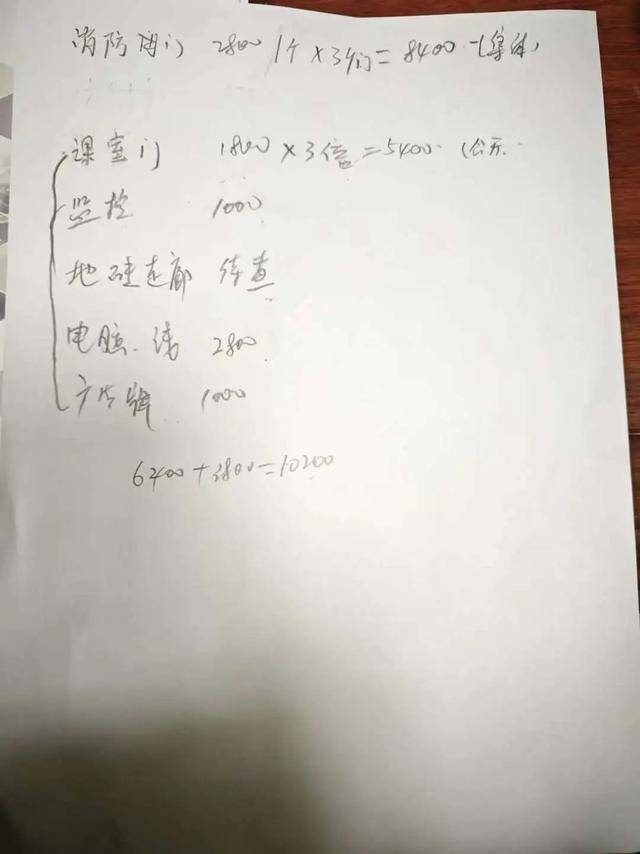 消防门 2800 1个×3个门=8400
课室门 1800×3倍=5400 (公开
监控 1000
地连廊 待查
电脑.线 2800
广告牌 1000
6400+3800=10200